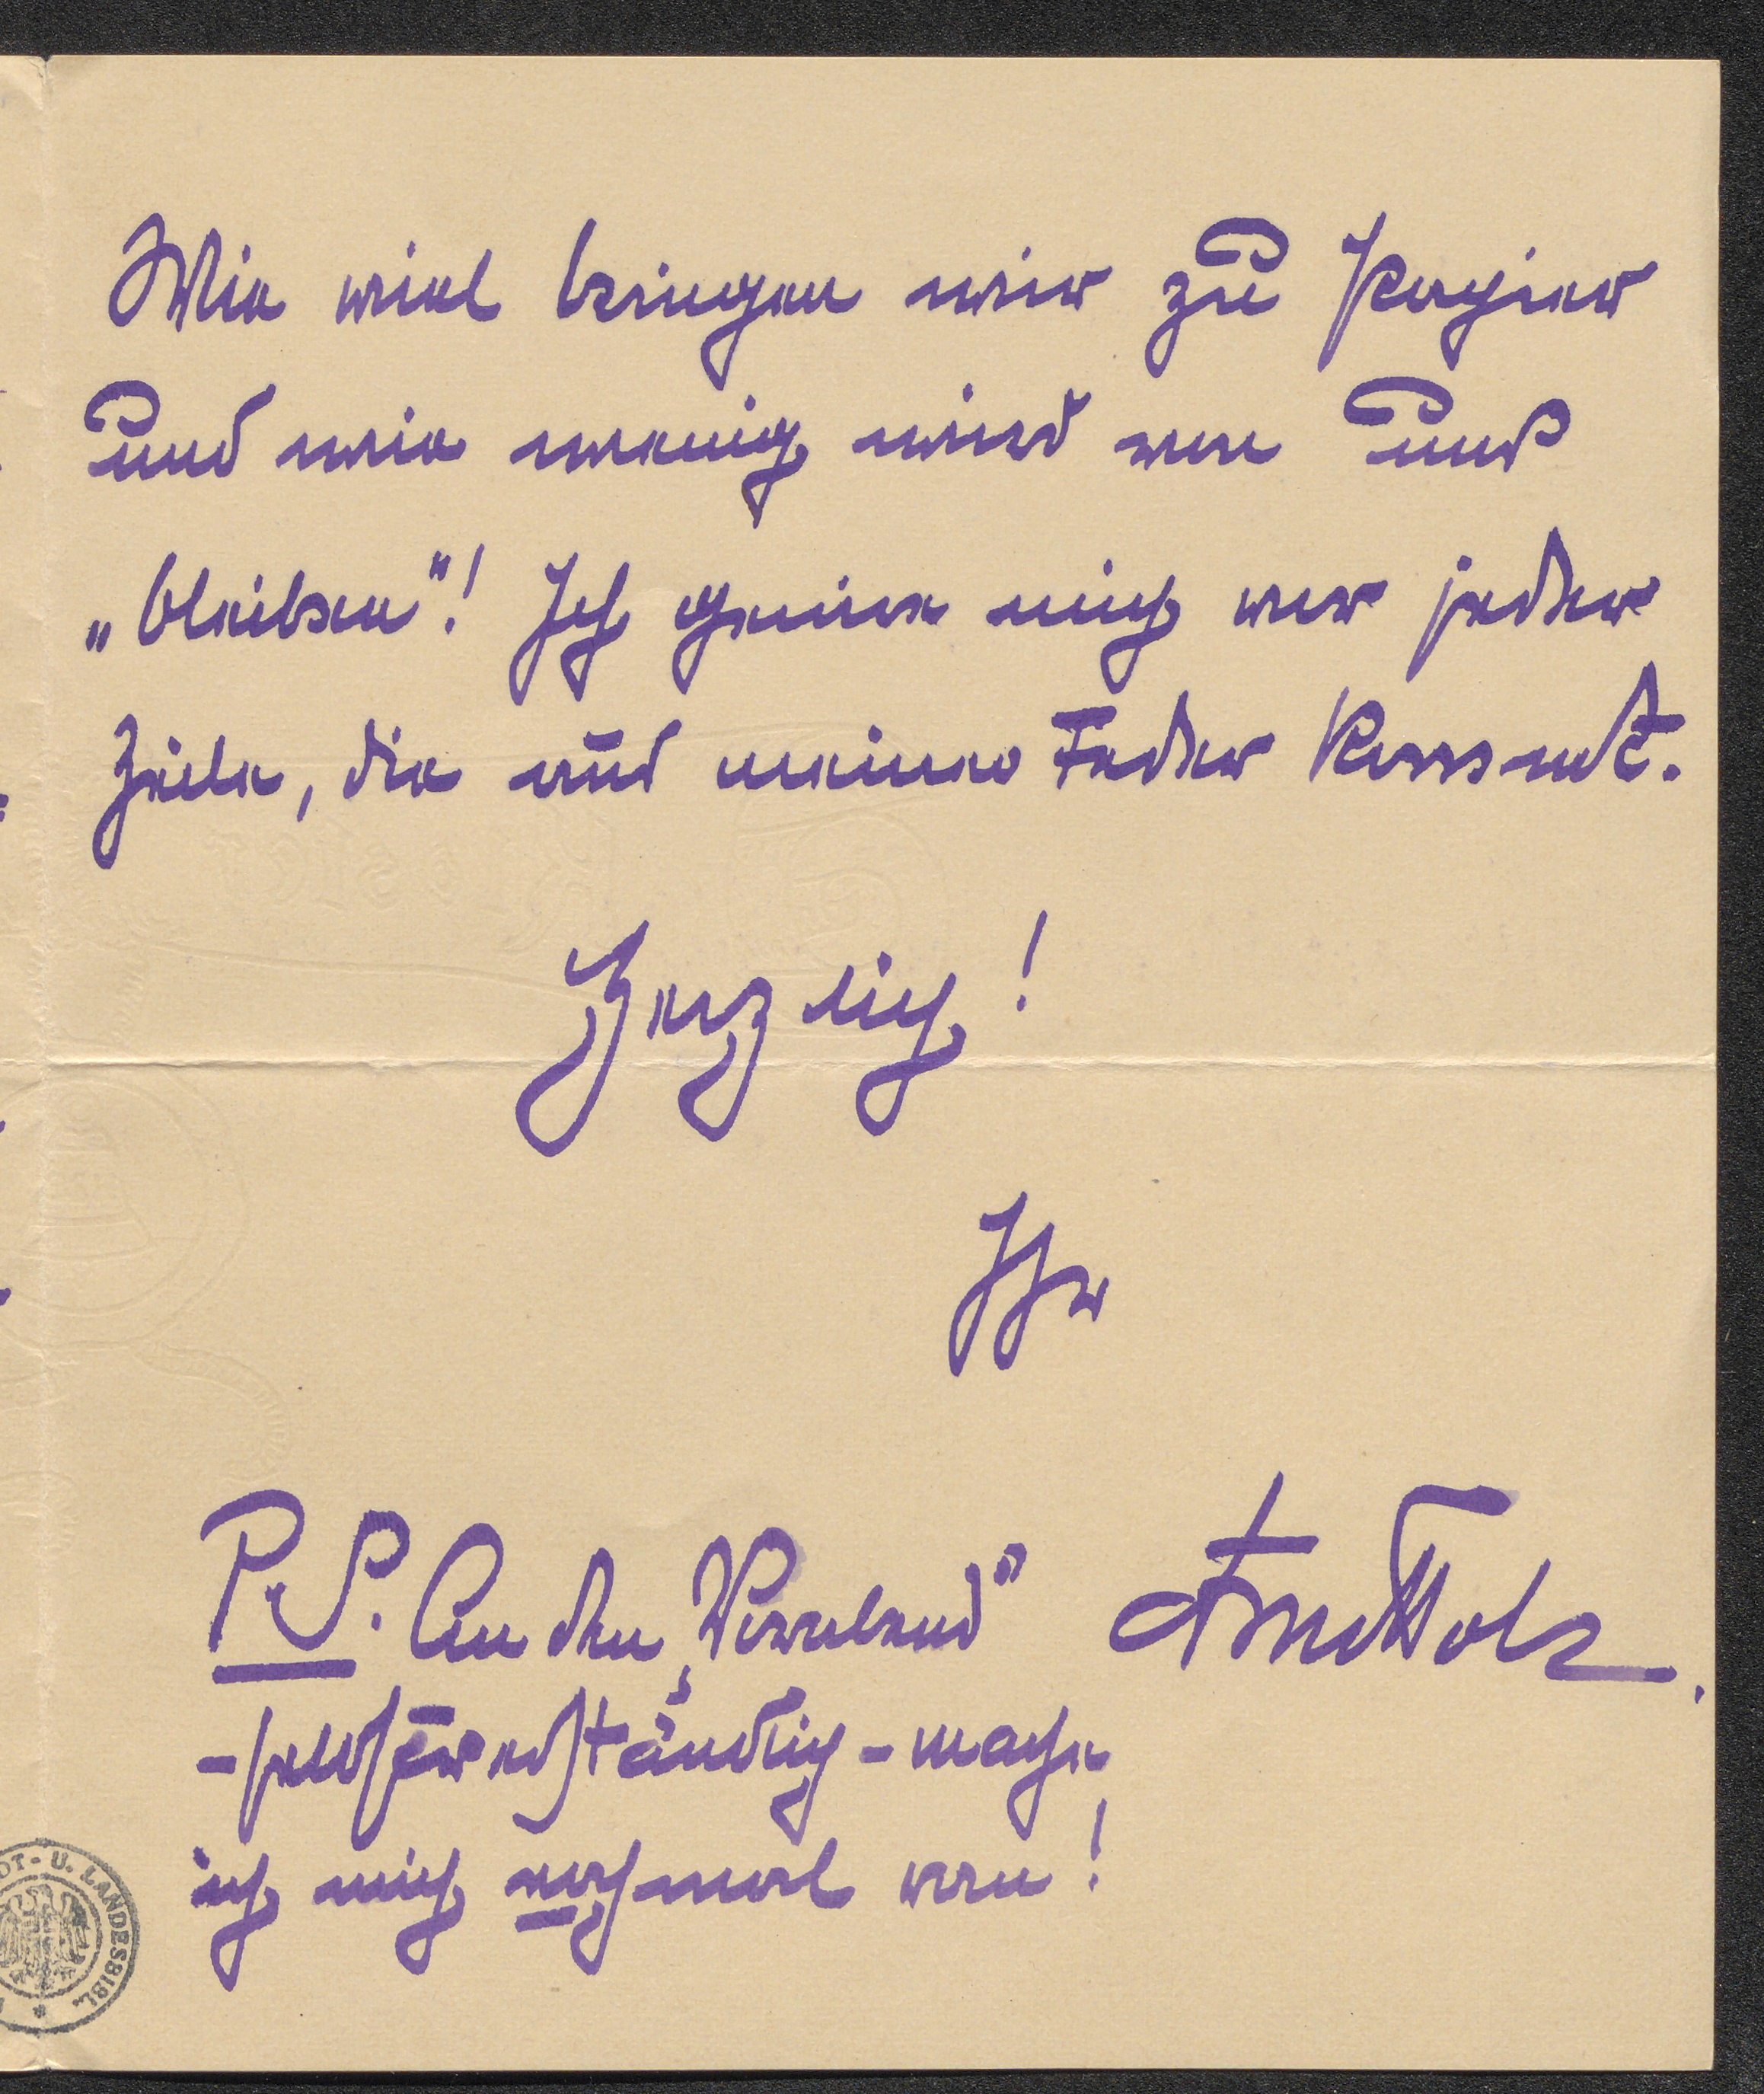 Wie viel bringen wir zu Papier
und wie wenig wird von uns
„bleiben"! Ich geniere mich vor jeder
Zeile, die aus meiner Feder kommt.
Herzlich!
Ihr
Arno Holz.
P.S. An den „Vorabend"
- selbstverständlich - mache
ich mich nochmal ran!
U. LANDESBIBL.